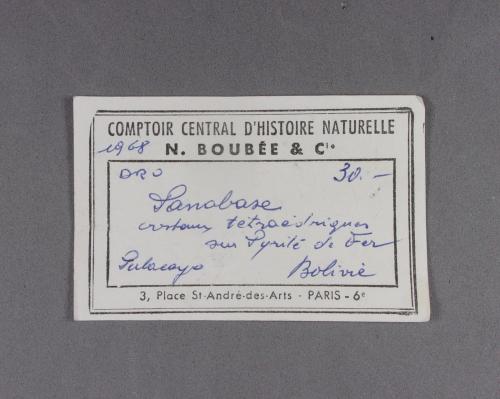 COMPTOIR CENTRAL D'HISTOIRE NATURELLE
1968 N. BOUBÉE & Cie
ORO 30.-
Panabase
cristaux tétraédriques
sur Pyrite de Fer
Pulacayo Bolivie
3, Place St-André-des-Arts - PARIS - 6e